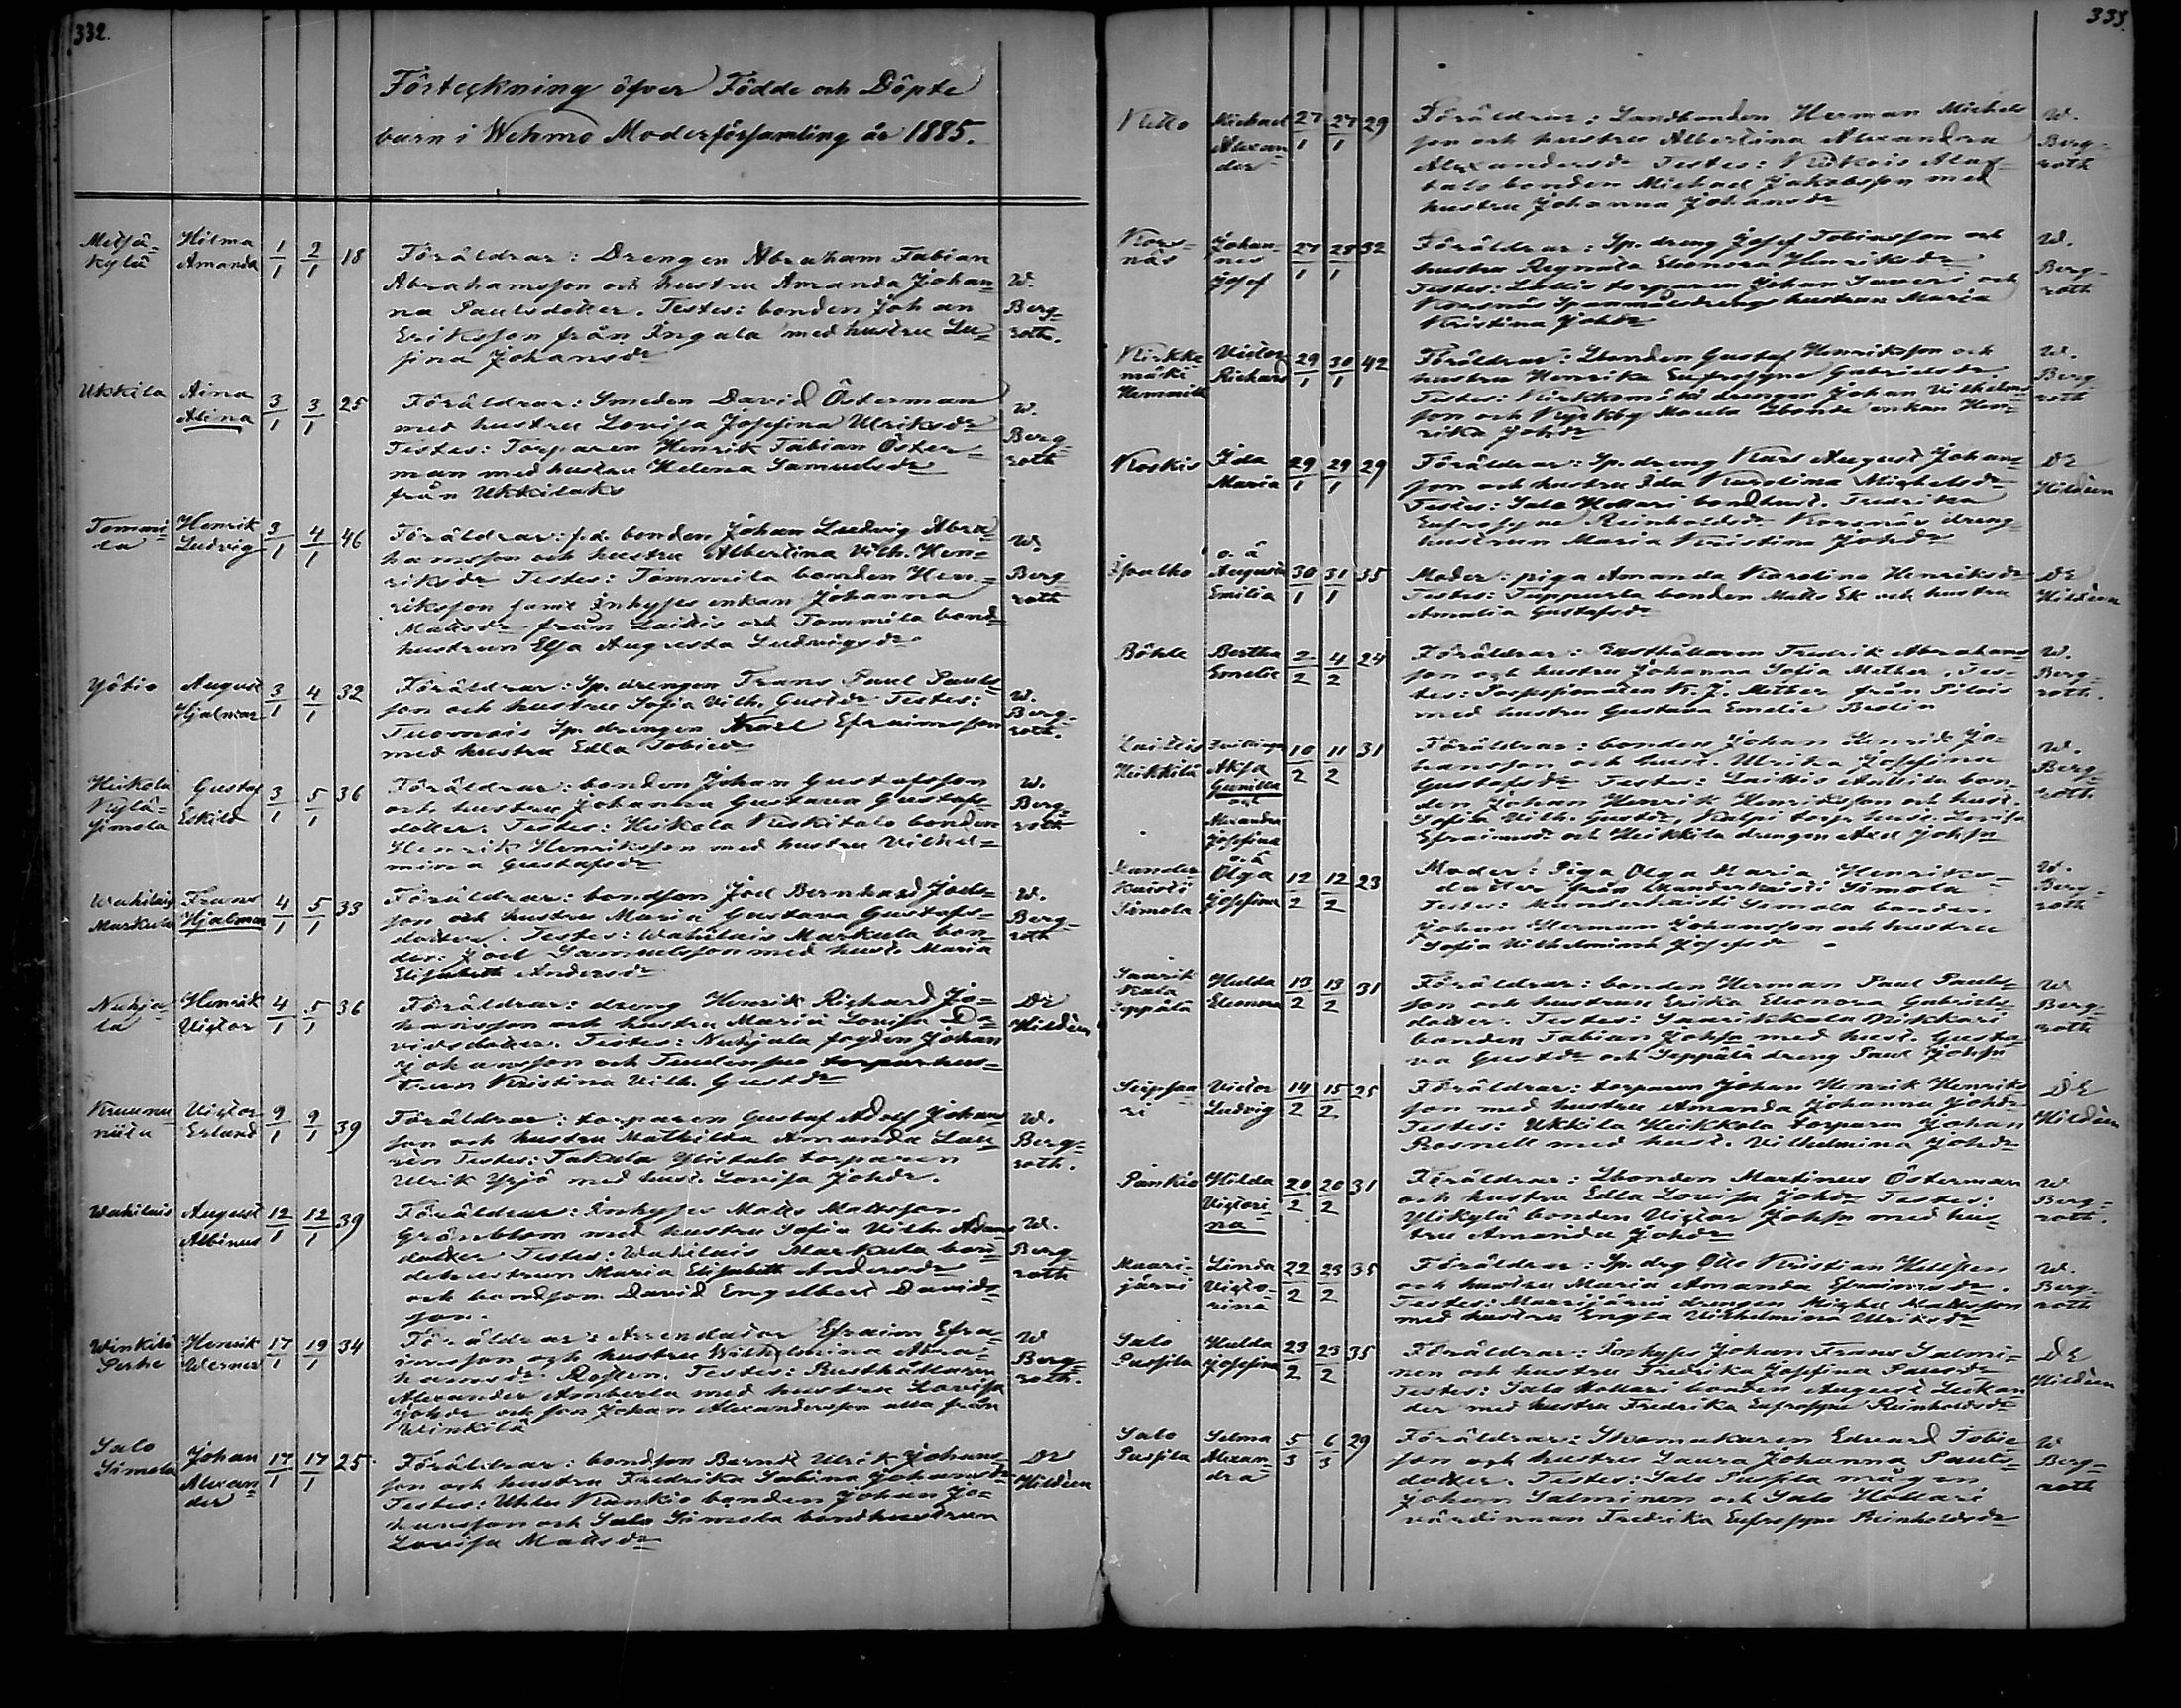 332.
Förteckning öfver Födde och Döpte
barn i Wehmo Moderförsamling år 1885.
Metsä-
kylä
Hilma
Amanda
1/1 2/1 18
Föräldrar: Drengen Abraham Fabian
Abrahamsson och hustru Amanda Johan-
na Paulsdotter. Testes: bonden Johan
Eriksson från Ingala med hustru Lu-
sina Johansdr
W.
Berg-
roth.
Ukkila
Aina
Alina
3/1 3/1 25
Föräldrar: Smeden David Österman
med hustru Lovisa Josefina Ulriksdr
Testes: Torparen Henrik Fabian Öster-
man med hustru Helena Samuelsdr
från Ukkilaks
W.
Berg-
roth
Tommi-
la
Henrik
Ludvig
3/1 4/1 46
Föräldrar: f.d. bonden Johan Ludvig Abra-
hamsson och hustru Albertina Vilh. Hen-
riksdr Testes: Tommila bonden Hen-
riksson samt Inhyses enkan Johanna
Mattsdr från Laidis och Tommila bond-
hustrun Elsa Augusta Ludvigsdr
W.
Berg-
roth
Yötiö
August
Hjalmar
3/1 4/1 32
Föräldrar: Sp. drengen Frans Paul Pauls-
son och hustru Sofia Vilh. Gustdr Testes:
Tuomois Sp. drengen Karl Efraimsson
med hustru Edla Tobiedr
W.
Berg-
roth.
Heikola
Kylä-
Simola
Gustaf
Eskild
3/1 5/1 36
Föräldrar: bonden Johan Gustafsson
och hustru Johanna Gustava Gustafs-
dotter. Testes: Heikola Keskitalo bonden
Henrik Henriksson med hustru Vilhel-
mina Gustafsdr
W.
Berg-
roth
Wahilais
Markula
Frans
Hjalmar
4/1 5/1 33
Föräldrar: bondson Joel Bernhard Joels-
son och hustru Maria Gustava Gustafs-
dotter. Testes: Wahilais Markula bon-
den Joel Samuelsson med hust. Maria
Elisabeth Andersdr
W.
Berg-
roth
Nuhja-
la
Henrik
Victor
4/1 5/1 36
Föräldrar: dreng Henrik Richard Jo-
hansson och hustru Maria Lovisa Da-
vidsdotter. Testes: Nuhjala fogden Johan
Johansson och torparhus-
trun Kristina Vilh. Gustdr
Dr
Hildèen
Kruunu
niitu
Victor
Erland
9/1 9/1 39
Föräldrar: torparen Gustaf Adolf Johans-
son och hustru Mathilda Amanda Lau-
rèn Testes: Takula Ylistalo torparen
Ulrik Yrjö med hust. Lovisa Johdr.
W.
Berg-
roth.
Wahilais
August
Albinus
12/1 12/1 39
Föräldrar: Inhyses Matts Mattsson
Grönblom med hustru Sofia Vilh. Adams-
dotter Testes: Wahilais Markula bon-
dehustrun Maria Elisabeth Andersdr
och bondson David Engelbert Davids-
son.
W.
Berg
roth
Winkilä
Perhe
Henrik
Werner
17/1 19/1 34
Föräldrar: Arrendator Efraim Efra-
imsson och hustru Wilhelmina Abra-
hamsdr Rosten. Testes: Rusthållaren
Alexander Amberla med hustru Lovisa
Johdr och son Johan Alexandersson alla från
Winkilä
W
Berg-
roth.
Salo
Simola
Johan
Alexan-
der
17/1 17/1 25
Föräldrar: bondson Bernt Ulrik Johans-
son och hustru Fredrika Sabina Johansdr
Testes: Uhlu Kankio bonden Johan Jo-
hansson och Salo Simola bondhustrun
Lovisa Mattsdr
Dr
Hildèen
333.
Michael
Alexan-
der
27/1 27/1 29
Föräldrar: Landbonden Herman Michels-
son och hustru Albertina Alexandra
Alexandersdr Testes: Ala-
talo bonden Michael Jakobsson med
hustru Johanna Johansdr
W.
Berg-
roth
Kors-
näs
Johan-
nes
Josef
27/1 28/1 32
Föräldrar: Sp. dreng Josef Tobiasson och
hustru Regnata Eleonora Henriksdr
Testes: Lallis torparen Johan Saveri och
Korsnäs Spanmålsdrengs hustrun Maria
Kristina Johdr
W.
Berg-
roth
Kirkko
mäki
Victor
Richard
29/1 30/1 42
Föräldrar: Lbonden Gustaf Henriksson och
hustru Henrika Eufrosyne Gabrielsdr
Testes: Kirkkomäki drengen Johan Vilhelms-
son och Nyckby Lbonde enkan Hen-
rika Johdr
W.
Berg-
roth
Koskis
Ida
Maria
29/1 29/1 29
Föräldrar: Sp. dreng Karl August Johans-
son och hustru Ida Karolina Michelsdr
Testes: Salo Hollari bondhust. Fredrika
Eufrosyne Reinholdsdr Korsnäs dreng-
hustrun Maria Kristina Johdr
Dr
Hildèen
o. ä
Augusta
Emilia
30/1 31/1 35
Moder: piga Amanda Karolina Henriksdr
Testes: Tuppurla bonden Matts Ek och hustru
Amalia Gustafsdr
Dr
Hildèen
Böhle
Bertha
Emelie
2/2 4/2 24
Föräldrar: Rusthållaren Fredrik Abrahams-
son och hustru Johanna Sofia Mether. Tes-
tes: K. J. Mether från
med hustru Gustava Emelie Berlin
W.
Berg-
roth.
Laittis
Heikkilä
Tvillingar
Aksa
Gunilla
och
Alexandra
Josefina
10/2 11/2 31
Föräldrar: bonden Johan Henrik Jo-
hansson och hust. Ulrika Josefina
Gustafsdr Testes: Laittis Anttila bon-
den Johan Henrik Henriksson och hust.
Sofia Vilh. Gustdr, Kulpi torp. hust. Lovisa
Efraimsdr och Heikkilä drengen Axel Johsn
W.
Berg-
roth
Mander
kaisti
Simola
o. ä
Olga
Josefina
12/2 12/2 23
Moder: Piga Olga Maria Henriks-
dotter från Manderkaisti Simola
Testes: Manderkaisti Simola bonden
Johan Herman Johansson och hustru
Sofia Vilhelmina Josefsdr
W.
Berg-
roth
Saarik
kala
Seppälä
Hulda
Eleonora
13/2 13/2 31
Föräldrar: bonden Herman Paul Pauls-
son och hustrun Erika Eleonora Gabriels-
dotter. Testes: Saarikkala Nikkari
bonden Fabian Johsn med hust. Gusta-
va Gustdr och Seppälä dreng Paul Johsn
W
Berg-
roth
Seipsa-
ri
Victor
Ludvig
14/2 15/2 25
Föräldrar: torparen Johan Henrik Henriks-
son med hustru Amanda Johanna Johdr
Testes: Ukkila Heikkola torparen Johan
Rosnell med hust. Vilhelmina Johdr
Dr
Hildèen
Pankio
Hilda
Victori-
na
20/2 20/2 31
Föräldrar: Lbonden Martinus Österman
och hustru Edla Lovisa Johdr Testes:
Ylikylä bonden Victor Johsn med hus-
tru Amanda Johdr
W
Berg-
roth.
Maari-
järvi
Linda
Victo-
rina
22/2 23/2 35
Föräldrar: Sp. drg Otto Kristian Hellsten
och hustru Maria Amanda Efraimsdr.
Testes: Maarijärvi drengen Michel Mattsson
med hustru Engla Vilhelmina Ulriksdr
W.
Berg-
roth
Salo
Pussila
Hulda
Josefina
23/2 23/2 35
Föräldrar: Inhyses Johan Frans Salmi-
nen och hustru Fredrika Josefina Paulsdr
Testes: Salo Hollari bonden August Leikan-
der med hustru Fredrika Eufrosyne Reinholdsdr
Dr
Hildèen
Salo
Pussila
Selma
Alexan-
dra
5/3 6/3 29
Föräldrar: Skomakaren Edvard Tobia-
son och hustru Laura Johanna Pauls-
dotter. Testes: Salo Pussila mågen
Johan Salminen och Salo Hollari
värdinnan Fredrika Eufrosyne Reinholdsdr
W
Berg-
roth